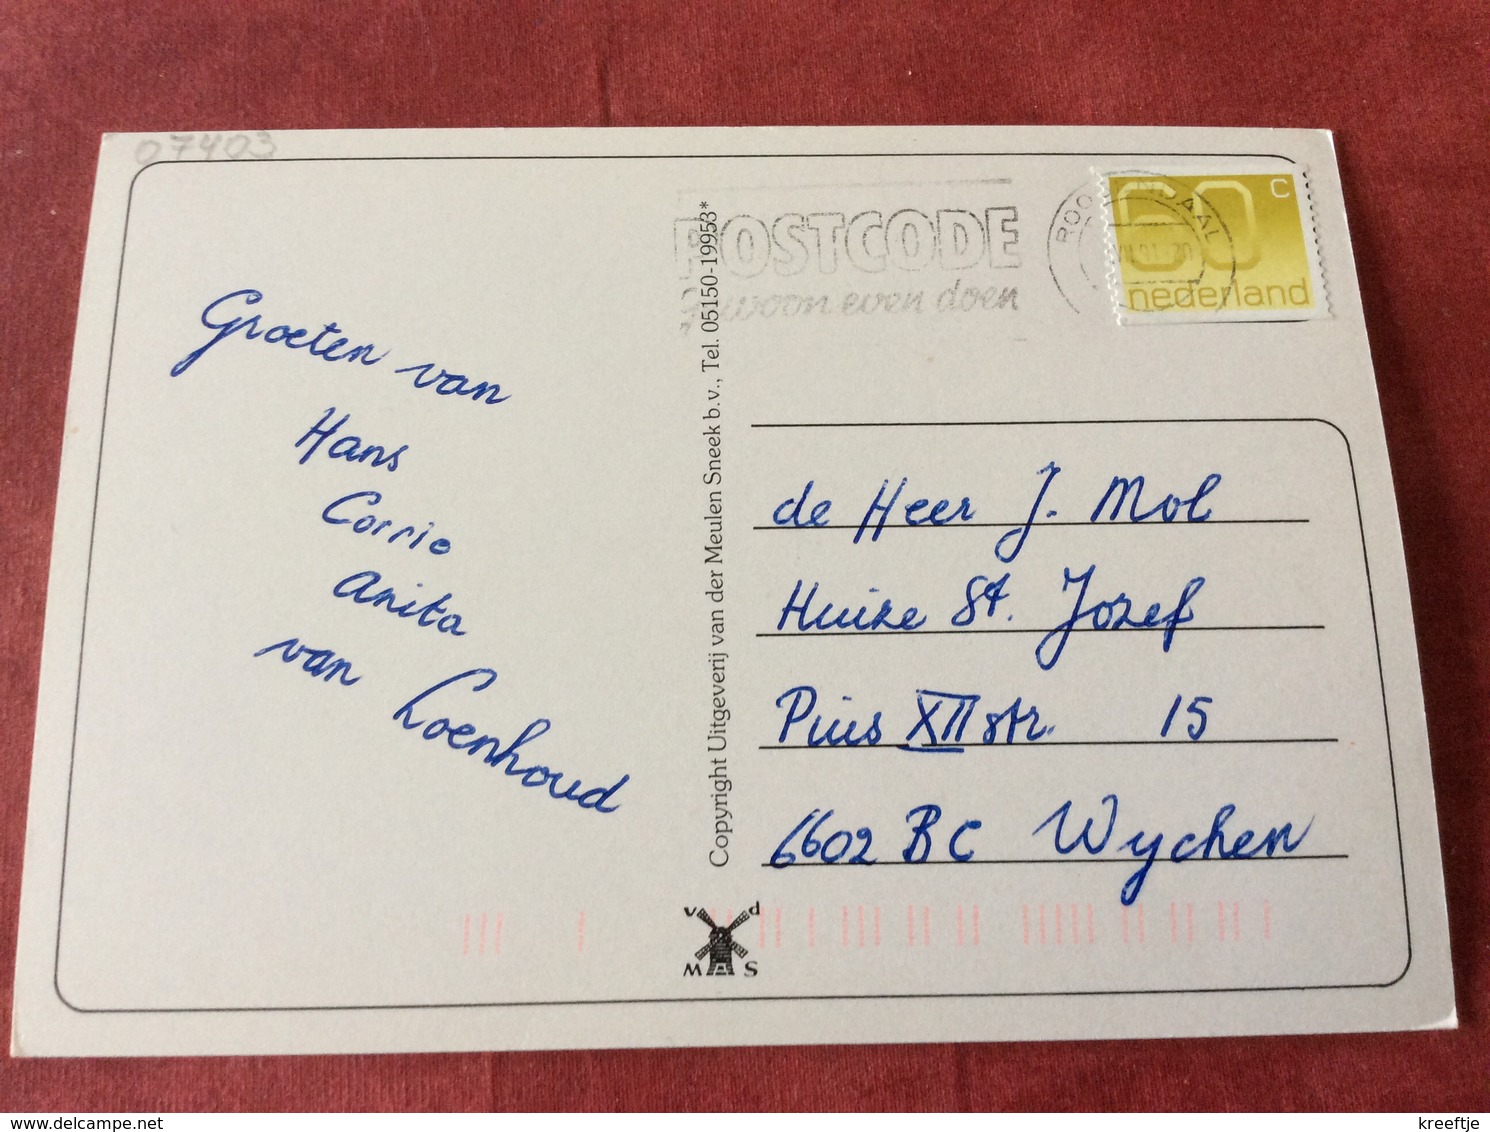 07403
POSTCODE
Gewoon even doen
ROOSENDAAL
60 C
nederland
Groeten van
Hans
Corrie
Anita
van Loenhoud
Copyright Uitgeverij van der Meulen Sneek b.v., Tel. 05150-19953*
de Heer J. Mol
Huize St. Jozef
Pius XII str. 15
6602 BC Wychen
v d
M S
kreeftje